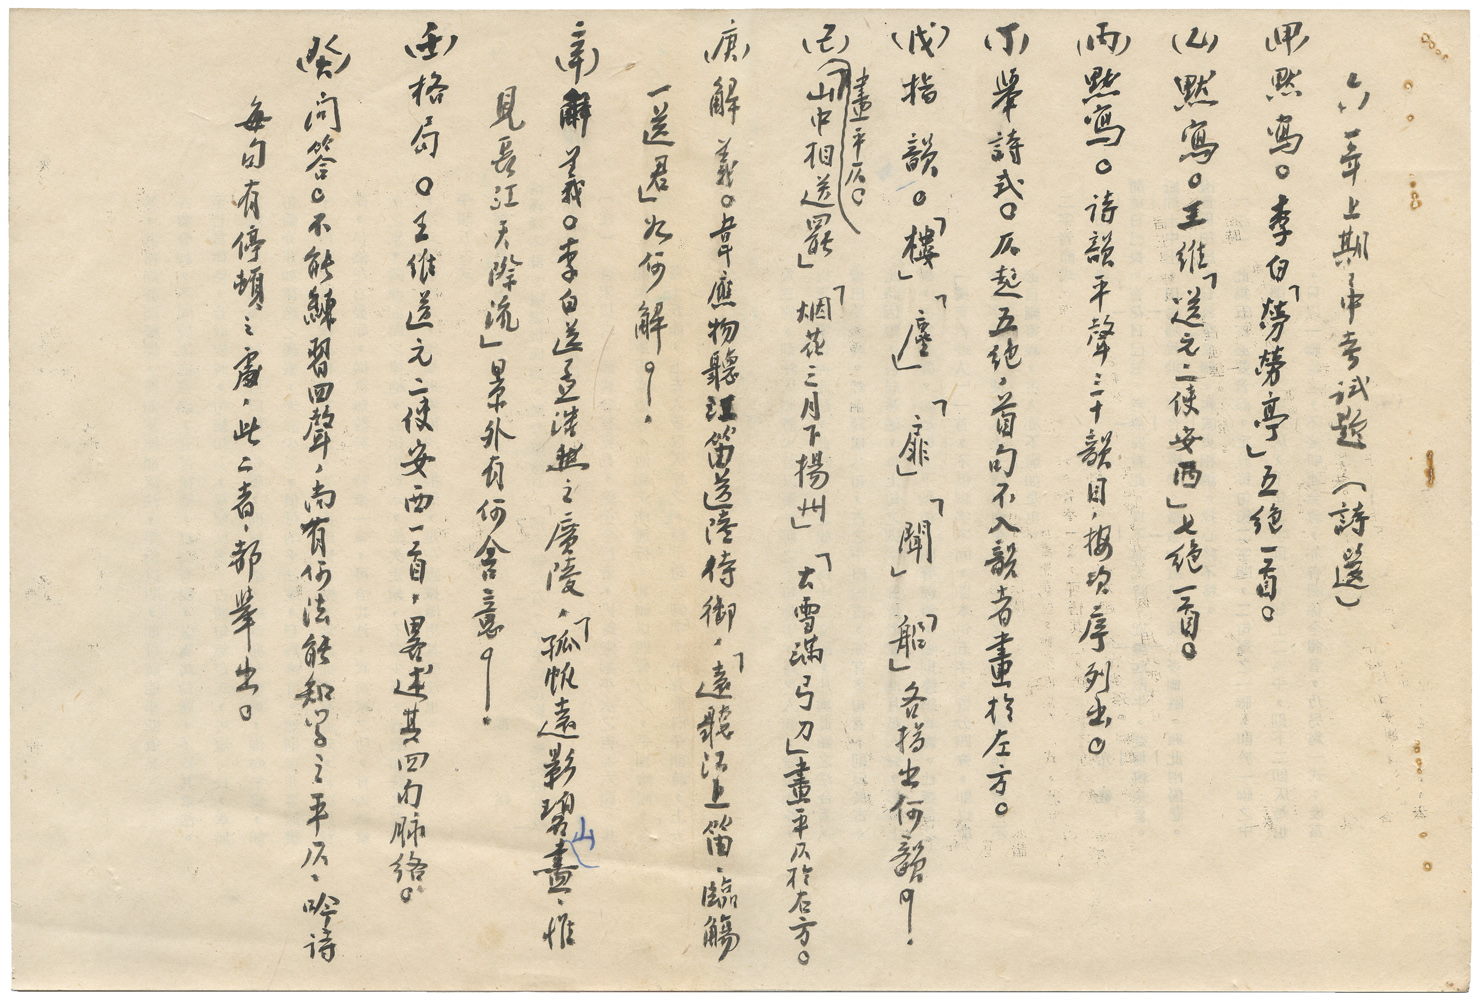 六一年上期年中考試題（詩選）
（甲）默寫。李白「勞勞亭」五絕一首。
（乙）默寫。王維「送元二使安西」七絕一首。
（丙）默寫。詩韻平聲三十韻目，按次序列出。
（丁）舉詩式。仄起五絕，首句不入韻者畫於左方。
（戊）指韻。「樓」「塵」「扉」「聞」「船」各指出何韻？
（己）畫平仄。「山中相送罷」「烟花三月下揚州」「大雪滿弓刀」畫平仄於右方。
（庚）解義。韋應物聽江笛送陸侍御，「遠聽江上笛，臨觴
一送君」如何解？
（辛）解義。李白送孟浩然之廣陵，「孤帆遠影碧山盡，惟
見長江天際流」景外有何含意？
（壬）格局。王維送元二使安西一首，畧述其四句脉絡。
（癸）問答。不能練習四聲，尚有何法能知字之平仄，吟詩
每句有停頓之處，此二者，都舉出。